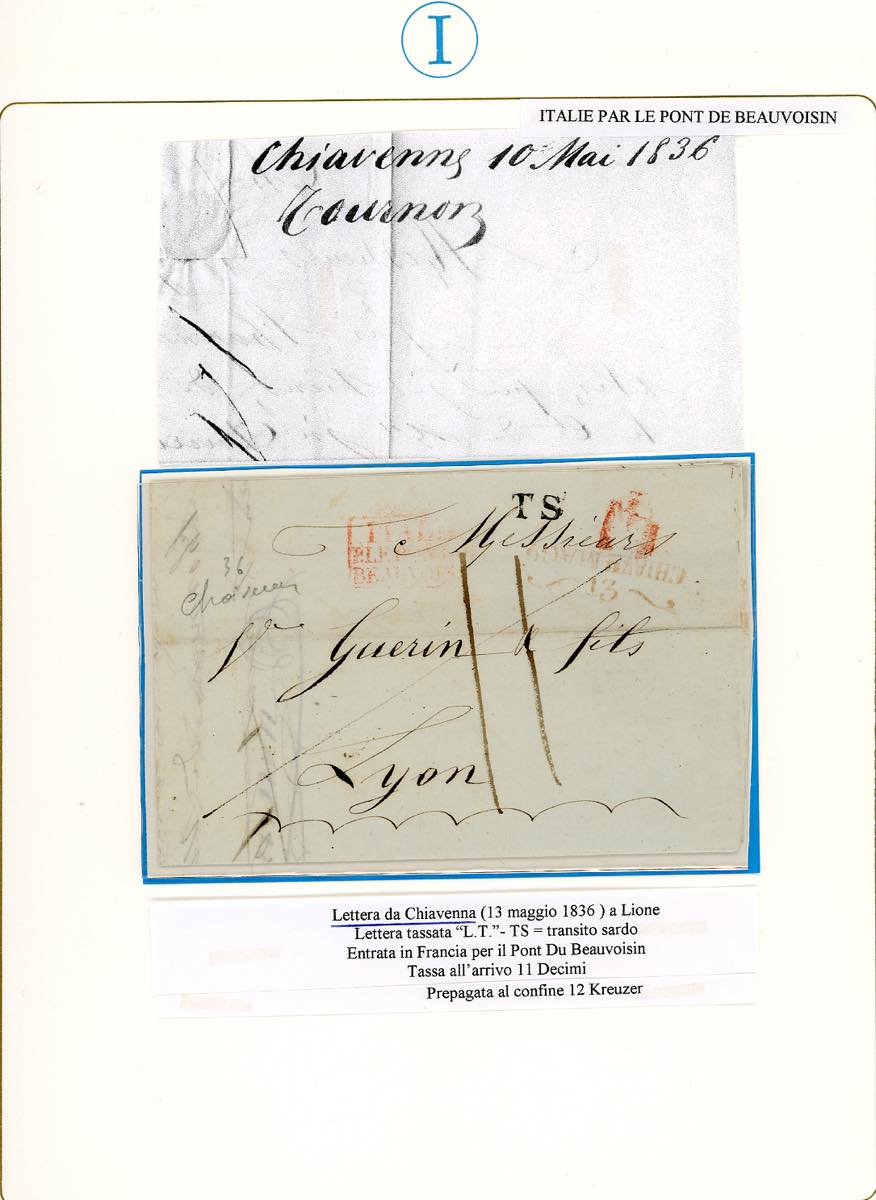 I
ITALIE PAR LE PONT DE BEAUVOISIN
Chiavenna 10 Mai 1836
Tournon
T S
Messieurs
36
Vve Guerin & fils
13
Lyon
Lettera da Chiavenna (13 maggio 1836 ) a Lione
Lettera tassata “L.T.”- TS = transito sardo
Entrata in Francia per il Pont Du Beauvoisin
Tassa all’arrivo 11 Decimi
Prepagata al confine 12 Kreuzer